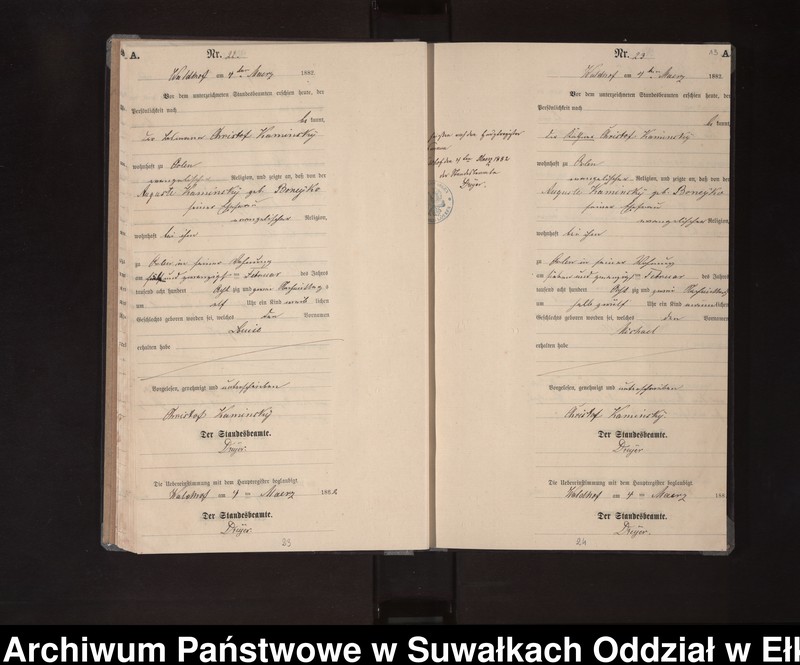 A.
Nr. 22
Waldhof am 4ten Maerz 1882
Vor dem unterzeichneten Standesbeamten erschien heute, der
Persönlichkeit nach
be kannt,
Christof Kaminsky
wohnhaft zu Polen
evangelischer Religion, und zeigte an, daß von der
Auguste Kaminsky geb
seiner Ehefrau
evangelischer Religion,
wohnhaft bei ihm
zu Polen in seiner Wohnung
am und zwanzigsten Februar des Jahres
tausend acht hundert Acht zig und zwei Nachmittags
um elf Uhr ein Kind weib lichen
Geschlechts geboren worden sei, welches den Vornamen
erhalten habe
Vorgelesen, genehmigt und unterschrieben
Christof Kaminsky
Der Standesbeamte.
Dreyer.
Die Uebereinstimmung mit dem Hauptregister beglaubigt
Waldhof am 4 ten Maerz 1882
Der Standesbeamte.
Dreyer.
25
den 4ten Maerz 1882
der Standesbeamte
Dreyer.
13 A
Nr. 23
Waldhof am 4ten Maerz 1882.
Vor dem unterzeichneten Standesbeamten erschien heute, der
Persönlichkeit nach
be kannt,
Christof Kaminsky
wohnhaft zu Polen
evangelischer Religion, und zeigte an, daß von der
Auguste Kaminsky geb
seiner Ehefrau
evangelischer Religion,
wohnhaft bei ihm
zu Polen in seiner Wohnung
am sieben und zwanzigsten Februar des Jahres
tausend acht hundert Acht zig und zwei Nachmittags
um halb zwölf Uhr ein Kind maennlichen
Geschlechts geboren worden sei, welches den Vornamen
Michael
erhalten habe
Vorgelesen, genehmigt und unterschrieben
Christof Kaminsky.
Der Standesbeamte.
Dreyer
Die Uebereinstimmung mit dem Hauptregister beglaubigt
Waldhof am 4 ten Maerz 188
Der Standesbeamte.
Dreyer.
24
Archiwum Państwowe w Suwałkach Oddział w Eł